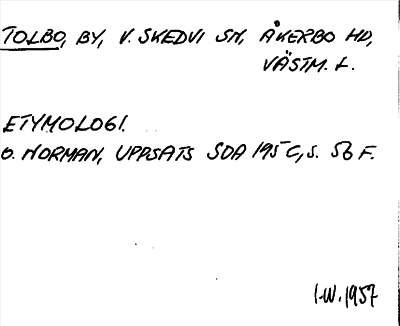 TOLBO, BY, V. SKEDVI SN, ÅKERBO HD,
VÄSTM. L.
ETYMOLOGI.
O. NORMAN, UPPSATS SOA 195C, S. 56 F.
I.W. 1957